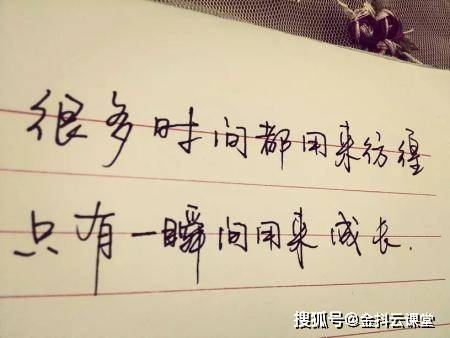 很多时间都用来彷徨
只有一瞬间用来成长.
搜狐号@金抖云课堂